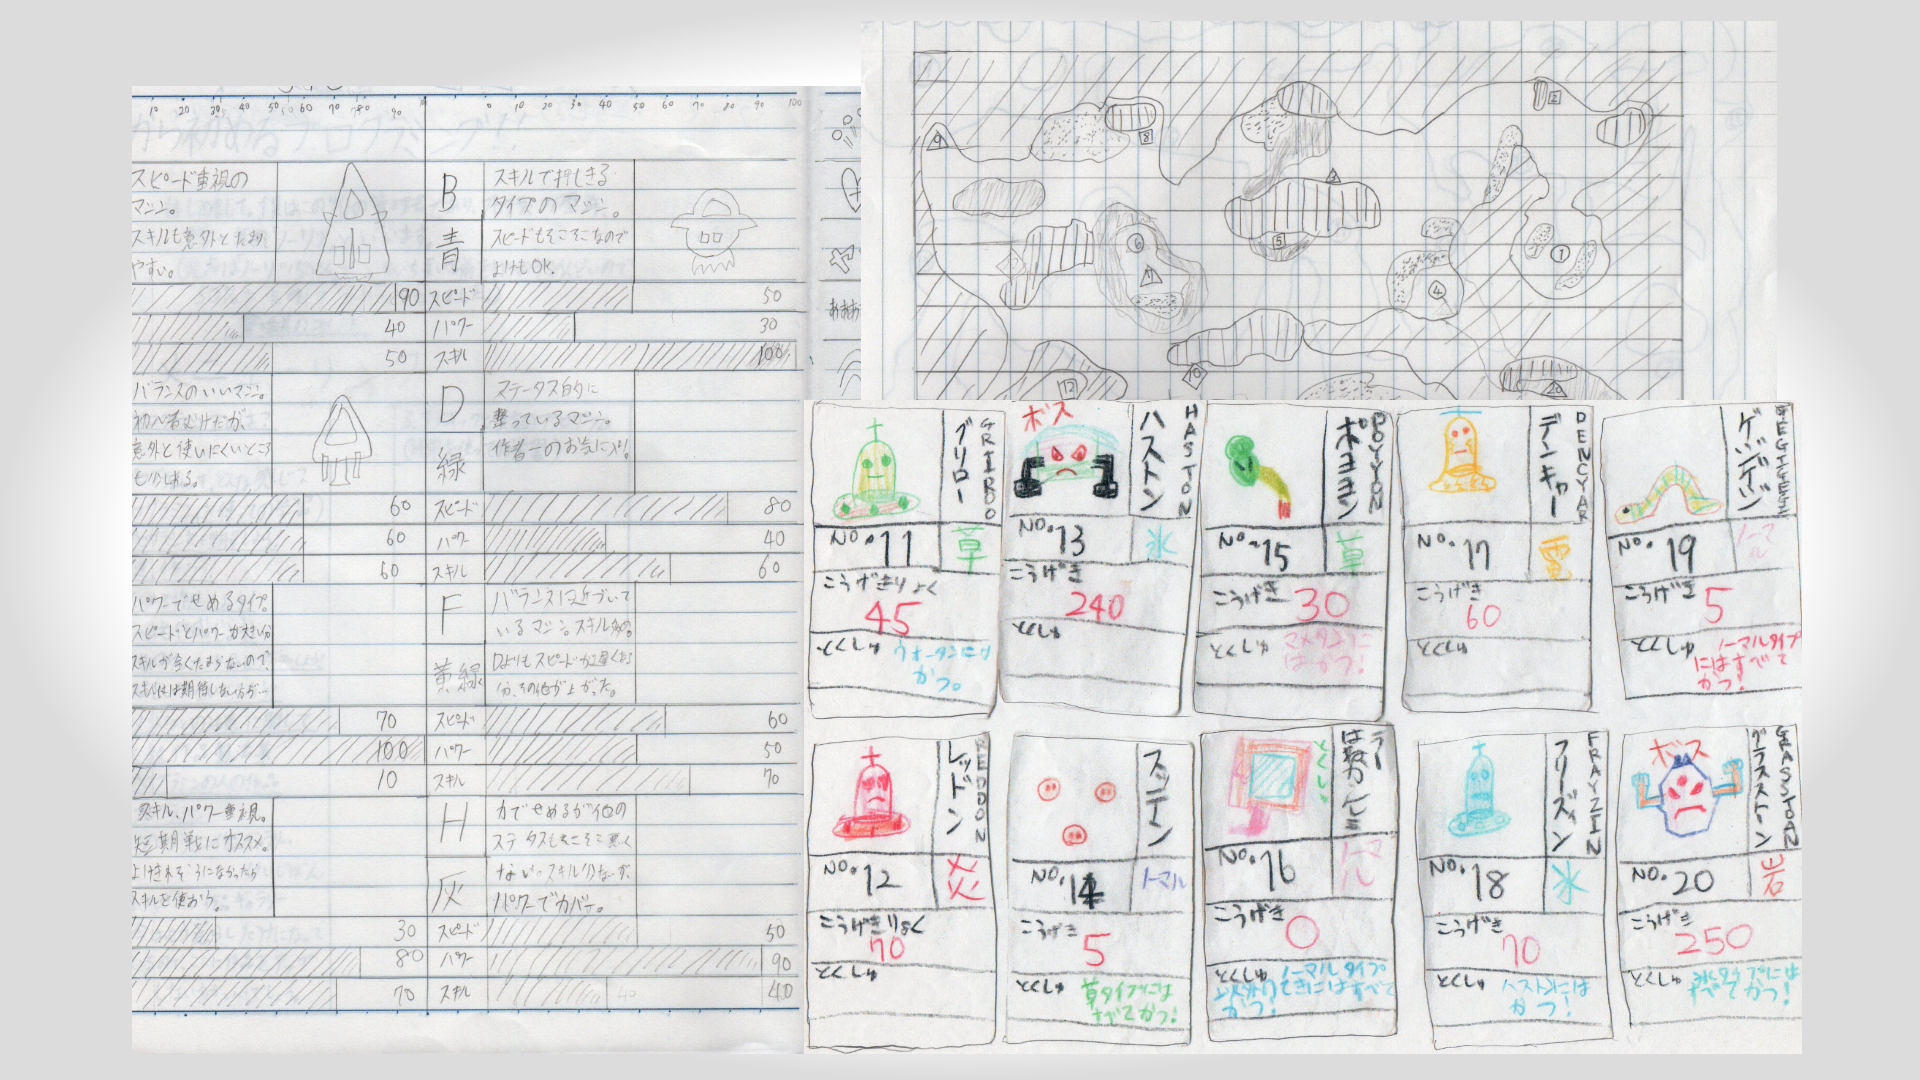 10 20 30 40 50 60 70 80 90
0 10 20 30 40 50 60 70 80 90 100
スピード重視の
マシン。
スキルも意外とたまり
やすい。
B
青
スキルで押しきる
タイプのマシン。
スピードもそこそこなので
よけもOK.
90 スピード 50
40 パワー 30
50 スキル 100
バランスのいいマシン。
初心者むけだが、
意外と使いにくいところ
もかしある。
D
緑
ステータス的に
整っているマシン。
作者一のお気に入り。
60 スピード 80
60 パワー 40
60 スキル 60
パワーでせめるタイプ。
スピードとパワーが大きい分
スキルが全くたまらないので、
スキルには期待しない方が…
F
黄緑
バランスに近づいて
いるマシン。スキル多め。
Dよりもスピードが遅くなる
分、その他が上がった。
70 スピード 60
100 パワー 50
10 スキル 70
スキル、パワー重視。
短期戦にオススメ。
よけきれそうになかったら
スキルを使おう。
H
灰
力でせめるが他の
ステータスもそこそこ悪く
ない。スキル少なーずが、
パワーでカバー。
30 スピード 50
80 パワー 90
70 スキル 40
9
8
3
2
5
6
7
1
4
10
12
グリロー
GRIROO
No.11
草
こうげきりょく
45
ボス
ハストン
HASTON
No.13
氷
こうげき
240
ポヨヨン
POYYON
No.15
草
こうげき
30
マメタンに
はかつ!
デンキャー
DENCYAR
No.17
電
こうげき
60
ゲジゲジ
GEGIGEGI
No.19
ノーマル
こうげき
5
ノーマルタイプ
にはすべて
かつ!
レッドン
REDDON
No.12
火
こうげきりょく
70
スッテン
No.14
ノーマル
こうげき
5
草タイプには
すべてかつ!
No.16
ノーマル
こうげき
0
フリーズン
FRAYZIN
No.18
氷
こうげき
70
ハストンには
かつ!
ボス
グラストン
GRASSTOAN
No.20
岩
こうげき
250
氷タイプには
すべてかつ!